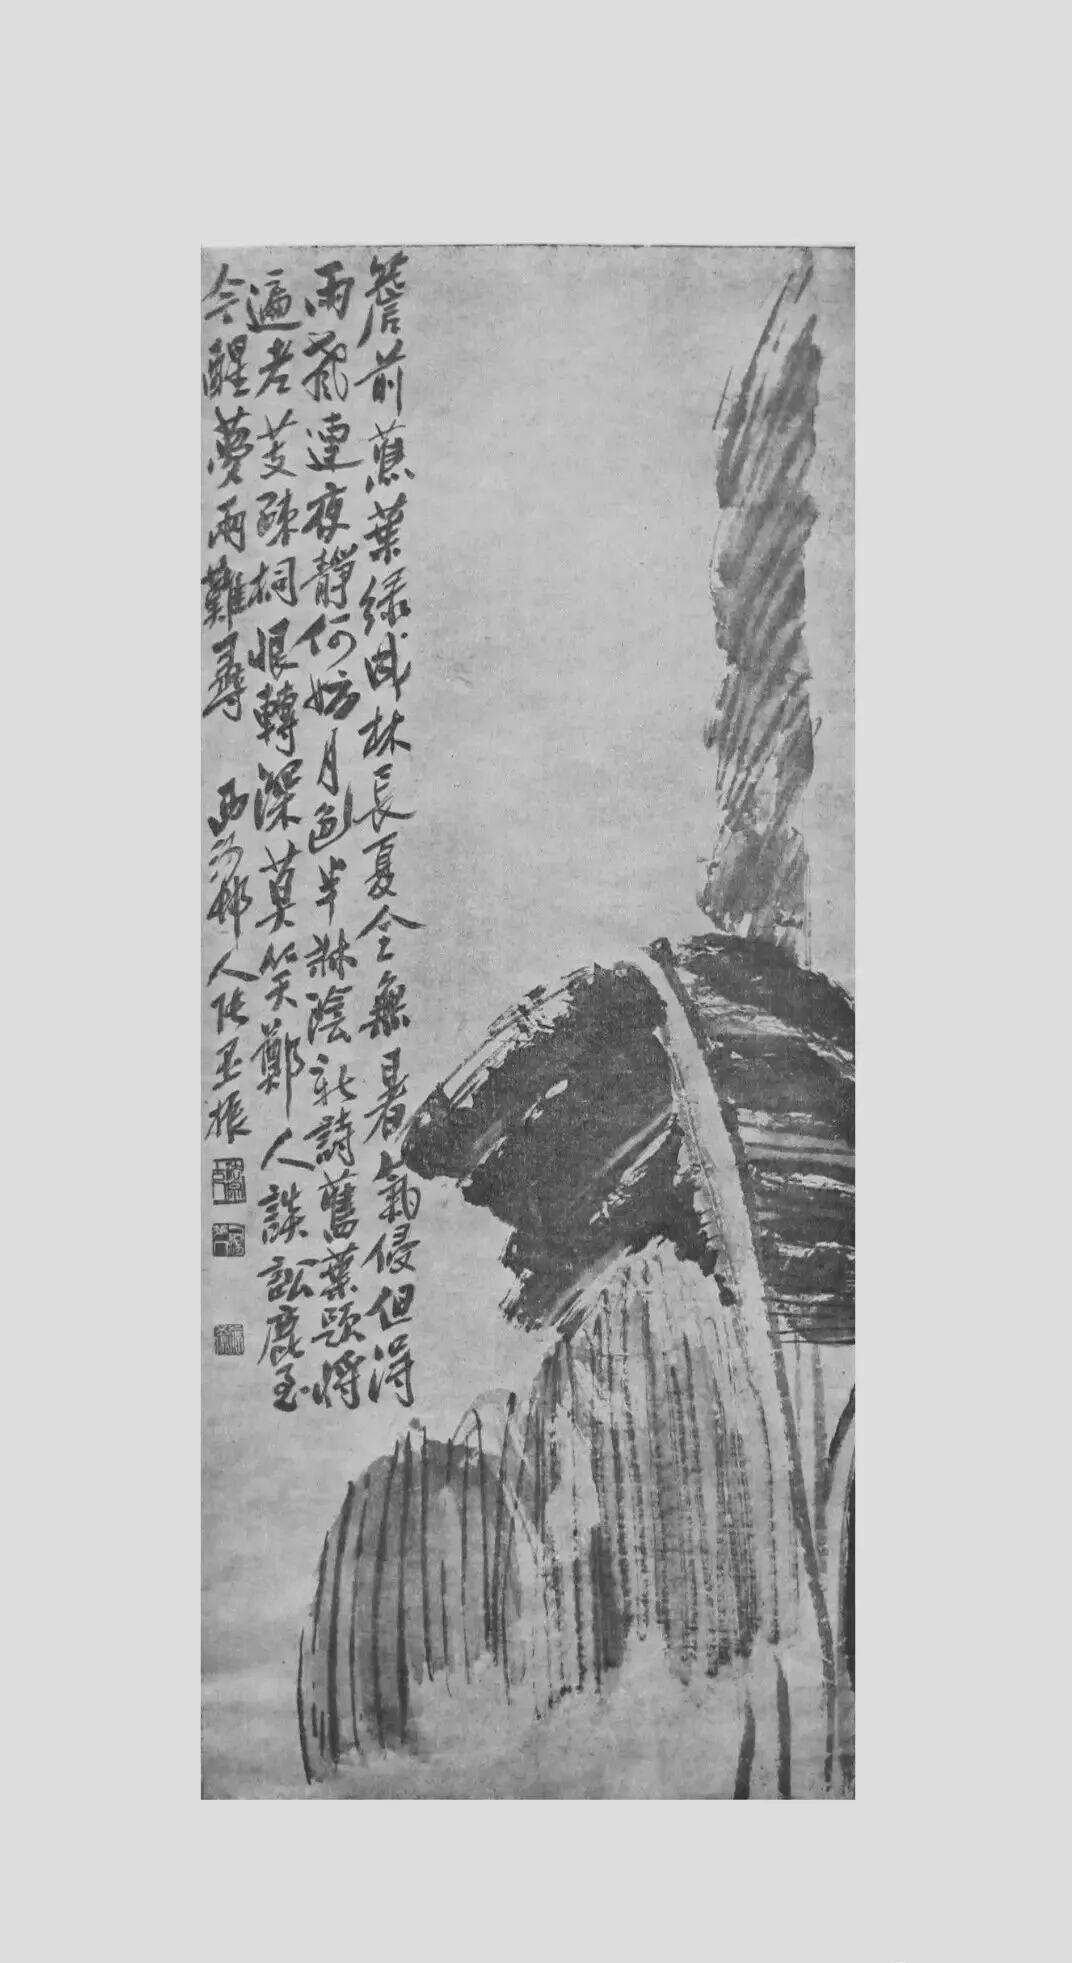 簷前蕉葉綠成林長夏全無暑氣侵但得
雨聲連夜靜何妨月色半牀陰新詩舊葉題將
遍老芰疎桐恨轉深莫笑鄭人談訟鹿至
今醒夢兩難尋 西 邨人